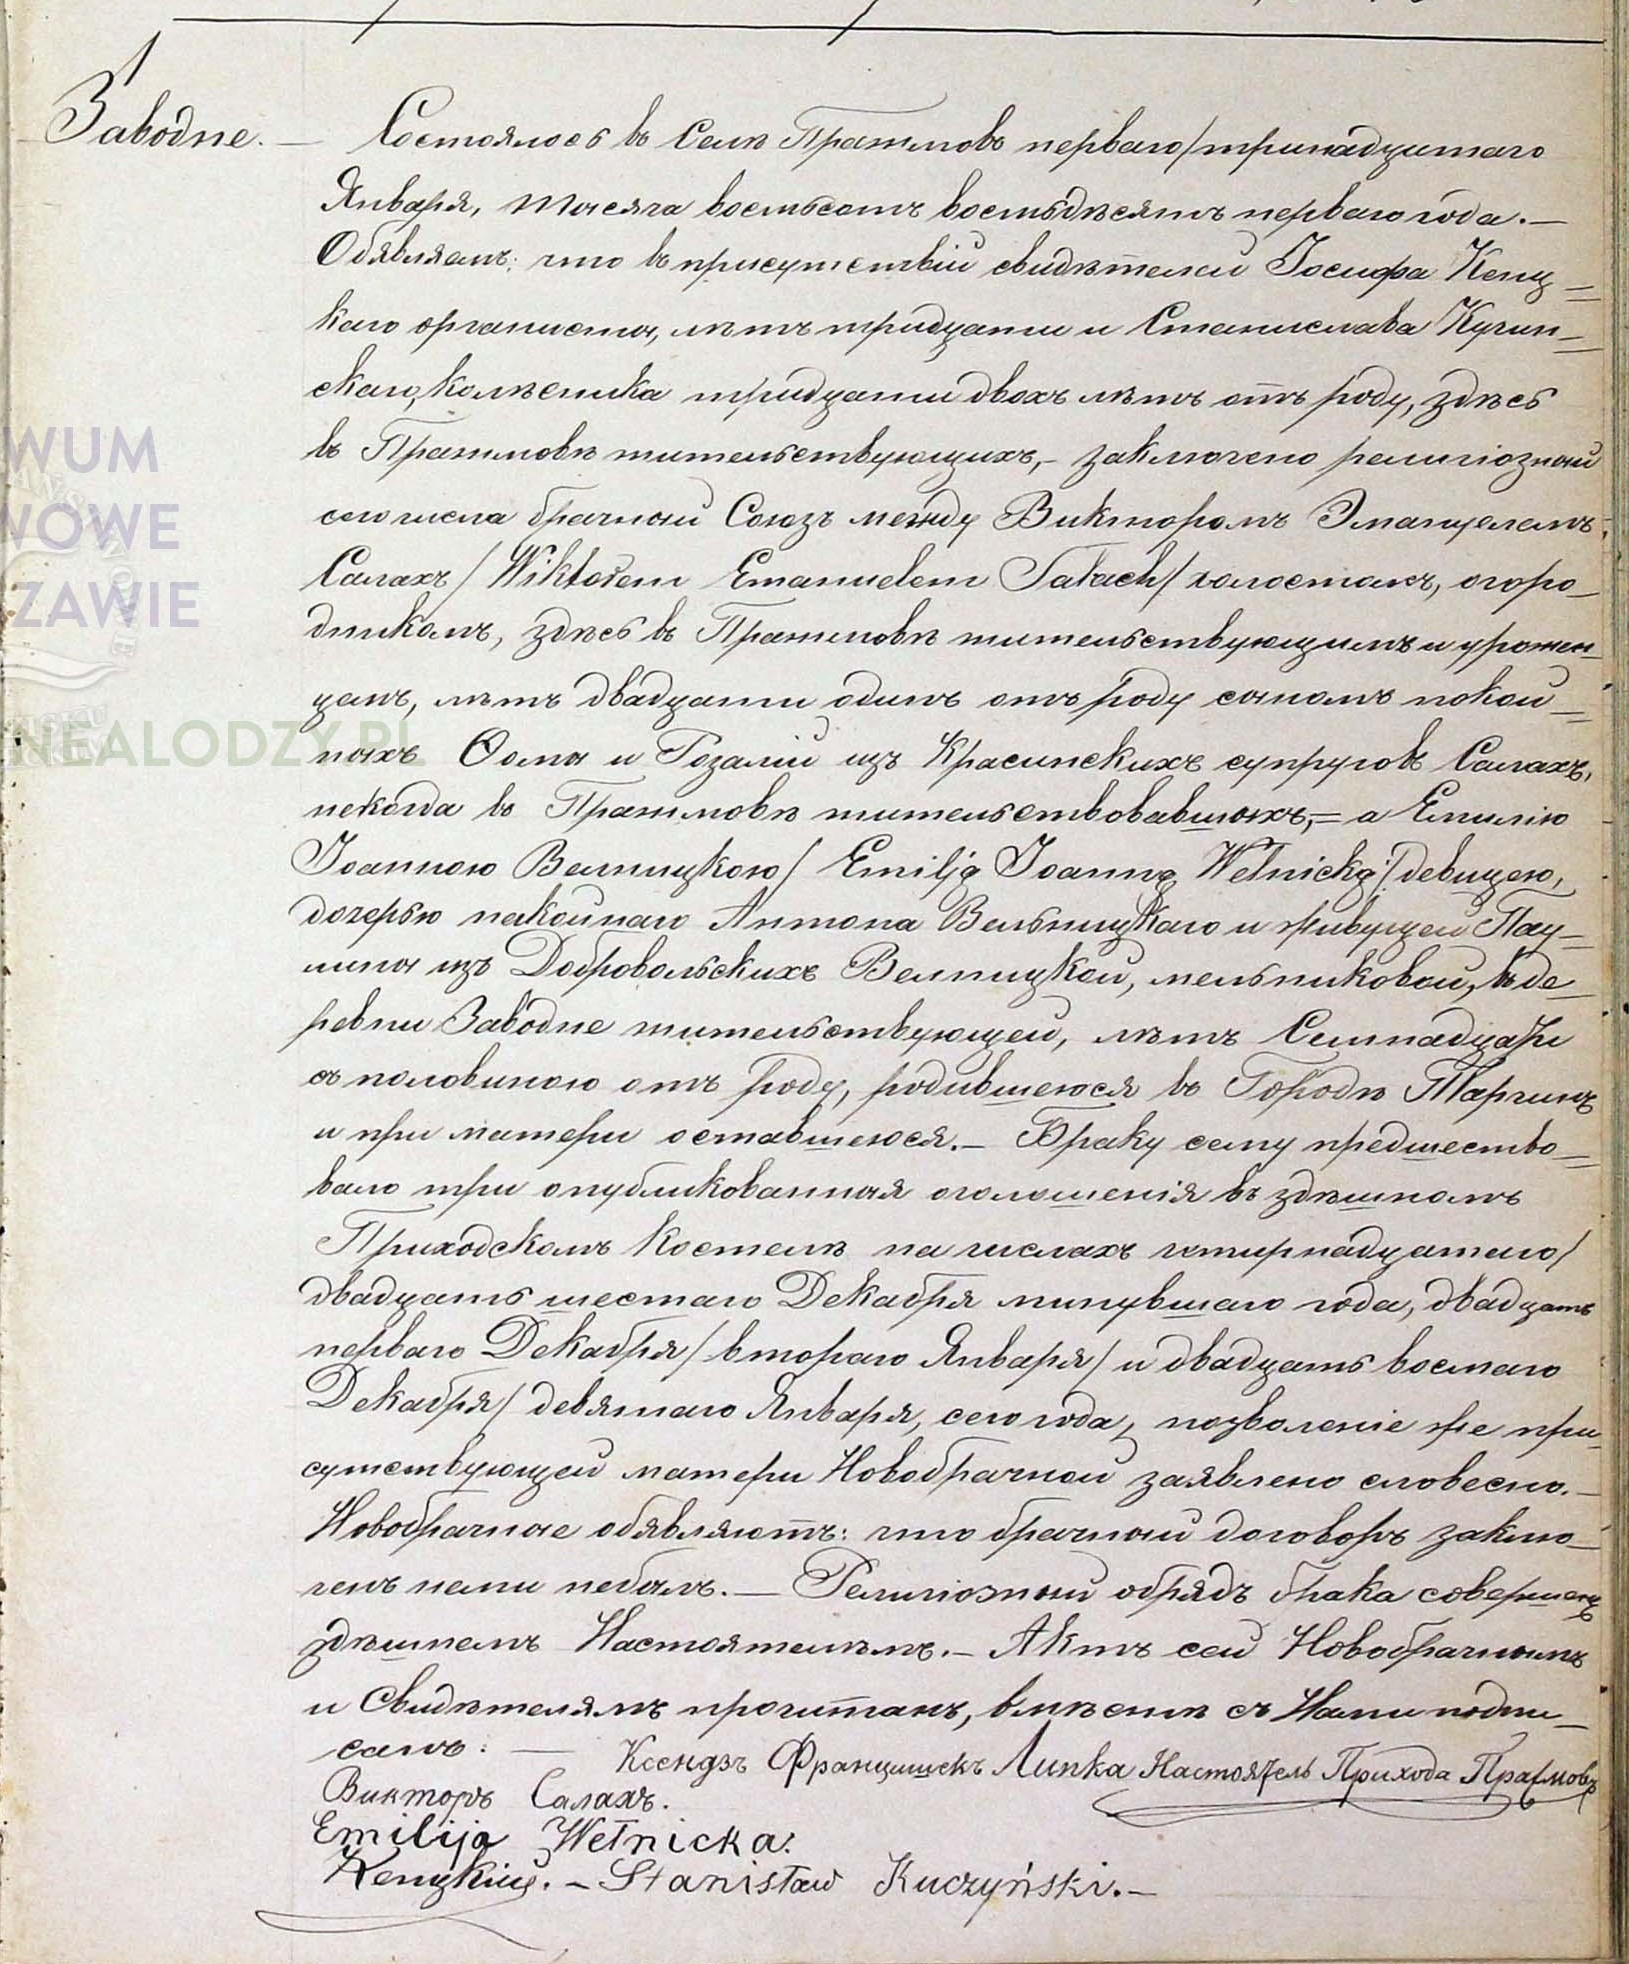 1
Заводне. — Состоялось въ Селѣ Пражмовъ перваго/тринадцатаго
Января, тысяча восемьсотъ восемьдѣсятъ перваго года. —
Обявляемъ: что въ присутствіи свидѣтелей Іосифа Кенц=
каго органисты, лѣтъ тридцати и Станислава Кучин=
скаго, колѣсника тридцати двохъ лѣтъ отъ роду, здѣсь
въ Пражмовѣ жительствующихъ, – заключено религіозный
сего числа брачный Союзъ между Викторомъ Эмануелемъ
Салахъ / Wiktorem Emanuelem Sałach / холостымъ, огоро–
дникомъ, здѣсь въ Пражмовѣ жительствующимъ и урожен–
цемъ, лѣтъ двадцати одинъ отъ роду сыномъ покой=
ныхъ Ѳомы и Розаліи изъ Красинскихъ супруговъ Салахъ,
некогда въ Пражмовѣ жительствовавшихъ, = а Емилію
Іоанною Велницкою / Emilją Joanną Wełnicką / девицею,
дочерью покойнаго Антона Вельницкаго и живущей Пау=
лины изъ Добровольскихъ Велницкой, мельниковой, въ де–
ревни Заводне жительствующей, лѣтъ Семнадцати
съ половиною отъ роду, родившеюся въ Городѣ Тарчинъ
и при матери оставшеюся. – Браку сему предшество=
вало три опубликованныя оголошенія въ здѣшномъ
Приходскомъ Костелѣ на числахъ четирнадцатаго/
двадцать шестаго Декабря минувшаго года, двадцать
перваго Декабря / втораго Января / и двадцать восмаго
Декабря / девятаго Января, сего года, позволеніе же при–
сутствующей матери Новобрачной заявлено словесно. –
Новобрачные обявляютъ: что брачный договоръ заклю–
ченъ нами небылъ. — Религіозный обрядъ брака совершенъ
здѣшнемъ Настоятелѣмъ. – Актъ сей Новобрачнымъ
и Свидѣтелямъ прочитанъ, вмѣстѣ съ Нами подпи–
санъ: — Ксендзъ Францишекъ Липка Настоятель Прихода Пражмовъ
Викторъ Салахъ.
Emilija Wełnicka.
Stanisław Kuczyński. –
NEALODZY.PL
WUM
WOWE
ZAWIE